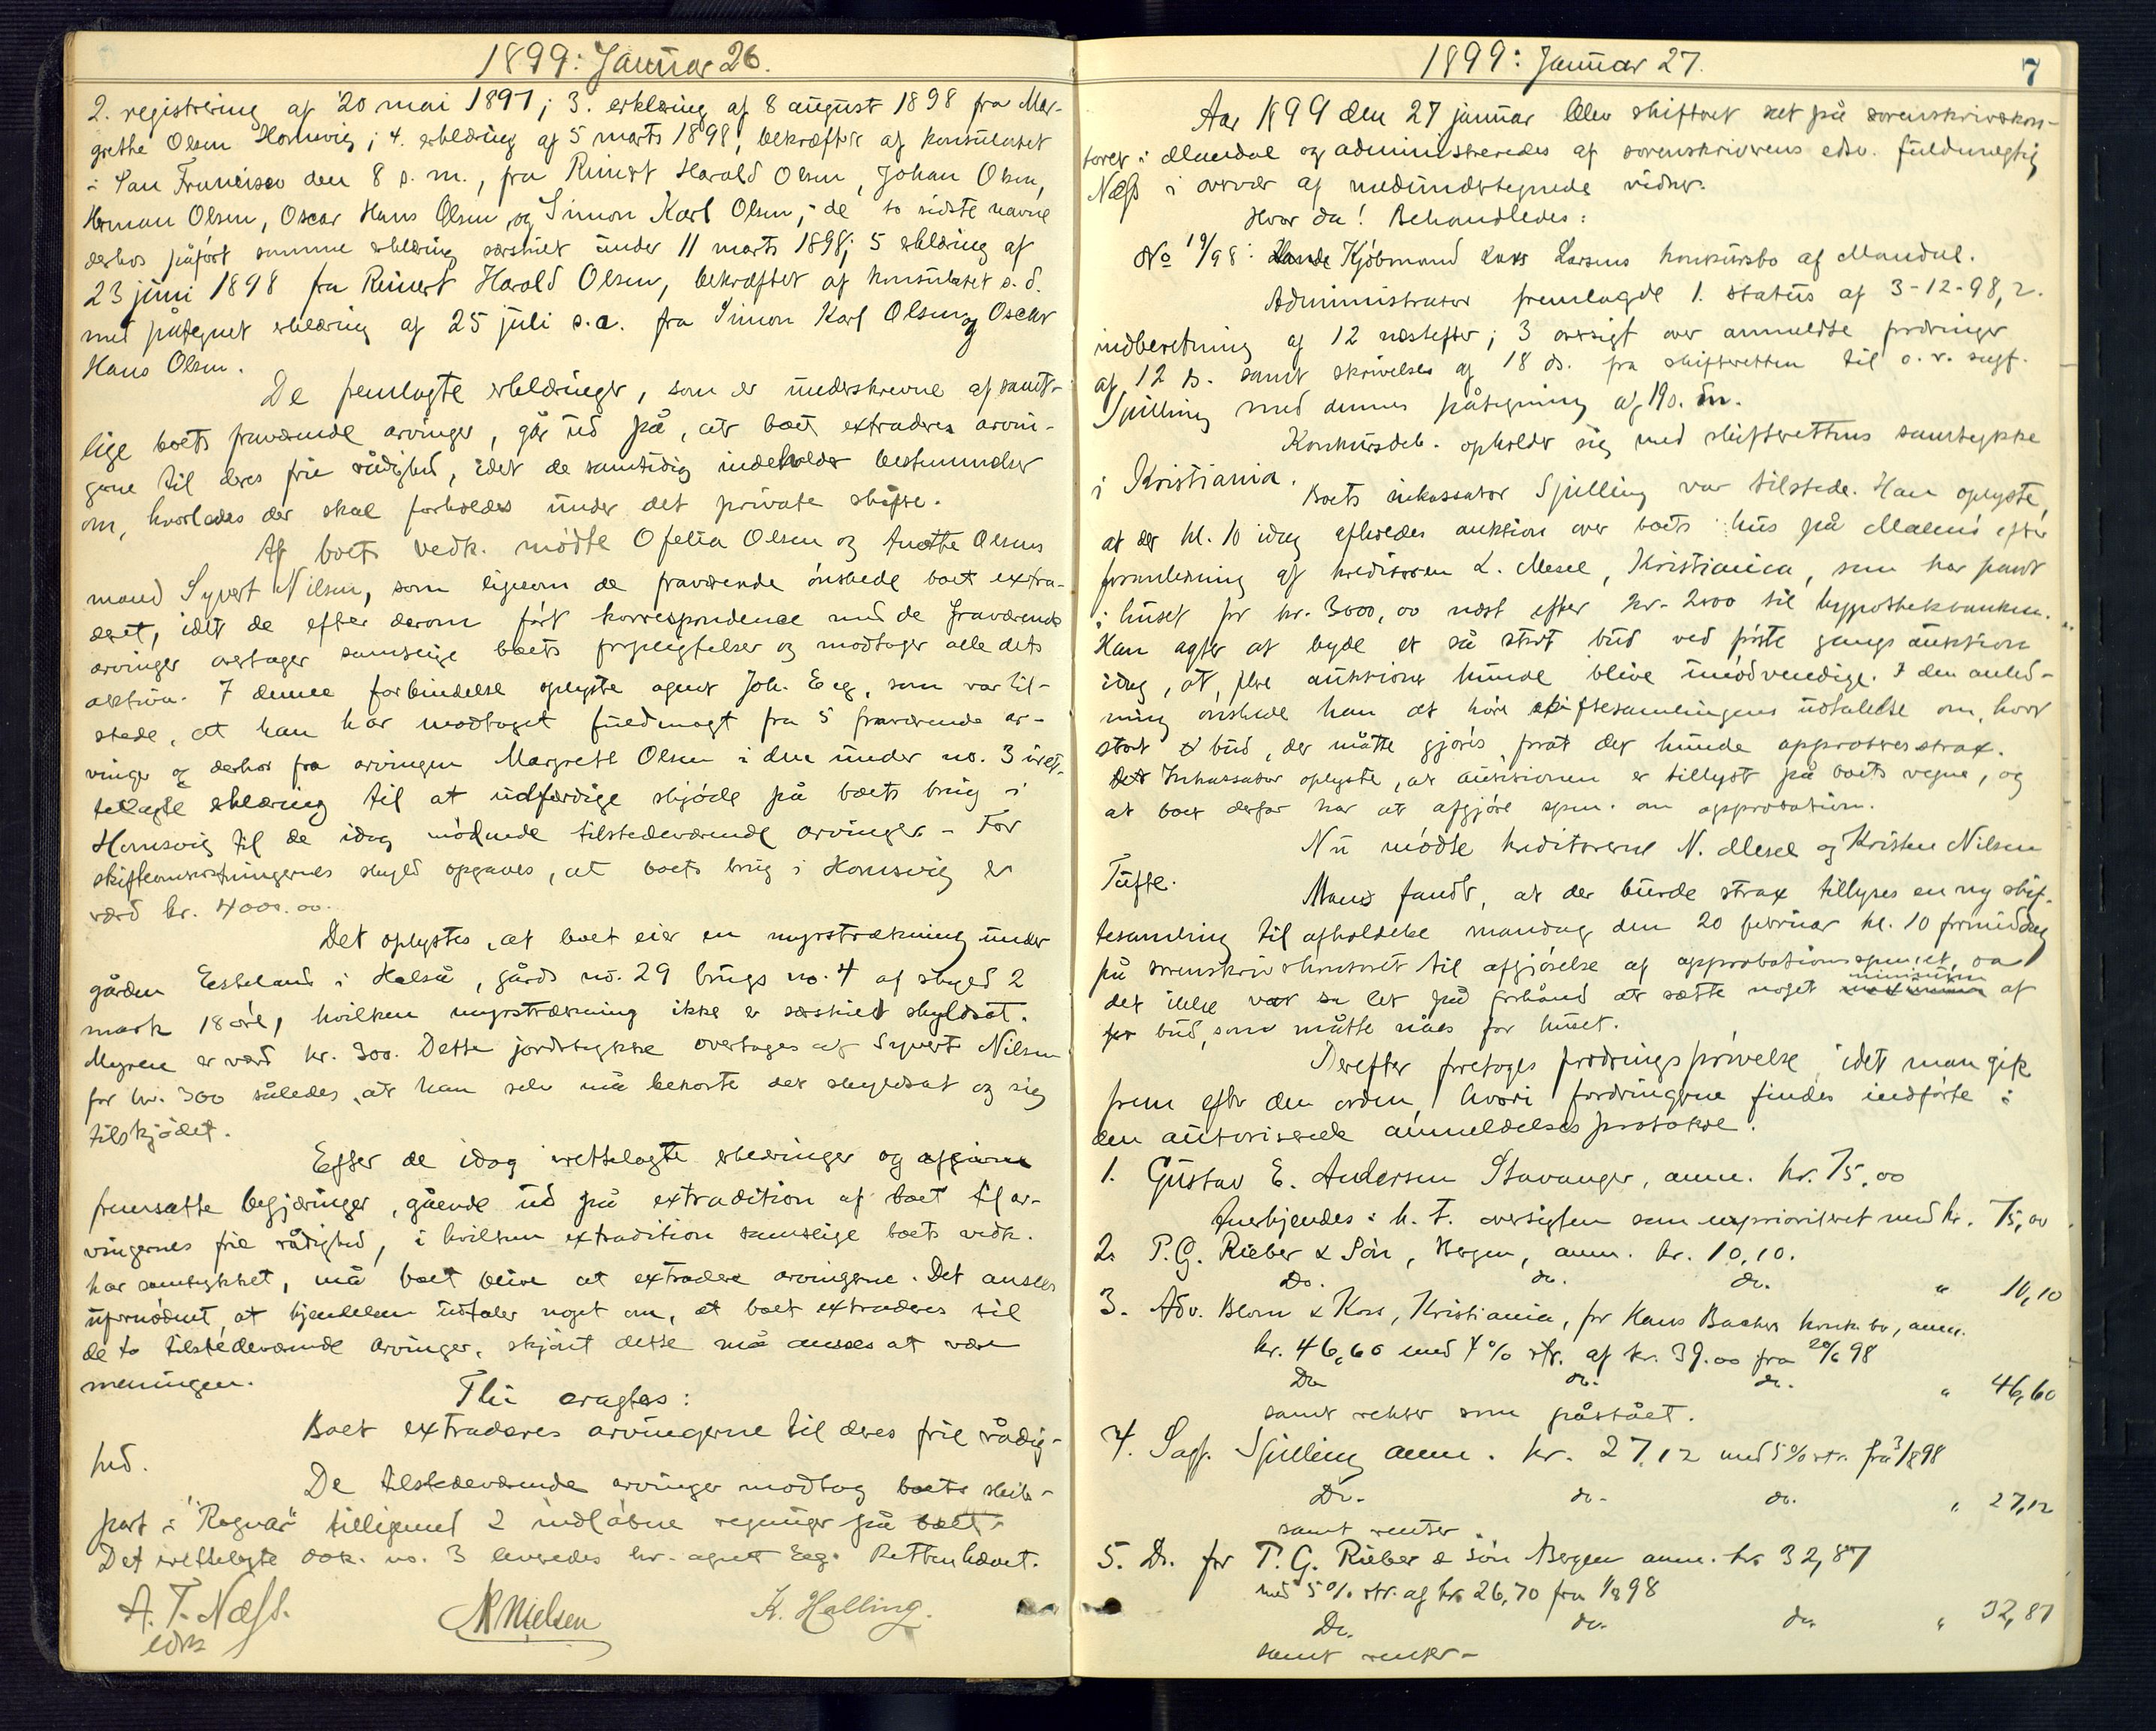 1899: Januar 26.
2. registrering af 20 mai 1897; 3. erklæring af 8 august 1898 fra Mar-
grethe Olsen Homsvig; 4. erklæring af 5 marts 1898, bekræftet af konsulatet
i San Francisco den 8 s. m., fra Reinert Harald Olsen, Johan Olsen,
Herman Olsen, Oscar Hans Olsen og Simon Karl Olsen, - de to sidste navne
derhos påført samme erklæring særskilt under 11 marts 1898; 5 erklæring af
23 juni 1898 fra Reinert Harald Olsen, bekræftet af konsulatet s. d.
med påtegnet erklæring af 25 juli s. a. fra Simon Karl Olsen og Oscar
Hans Olsen.
De fremlagte erklæringer, som er underskrevne af samt-
lige boets fraværende arvinger, går ud på, at boet extraderes arvin-
gerne til deres frie rådighed, idet de samtidig indeholder bestemmelser
om, hvorledes der skal forholdes under det private skifte.
Af boets vedk. mødte Ofelia Olsen og Anette Olsens
mand Syvert Nilsen, som ligesom de fraværende ønskede boet extra-
deret, idet de efter derom ført korrespondence med de fraværende
arvinger overtager samtlige boets forpligtelser og modtager alle dets
aktiva. I denne forbindelse oplyste agent Joh. Eeg, som var til-
stede, at han har modtaget fuldmagt fra 5 fraværende ar-
vinger og derhos fra arvingen Margrethe Olsen i den under no. 3 iret-
telagte erklæring til at udfærdige skjøde på boets brug i
Homsvig til de idag mødende tilstedeværende arvinger. - For
skifteomkostningernes skyld opgaves, at boets brug i Homsvig er
værd kr. 4000.00.
Det oplystes, at boet eier en myrstrækning under
gården Eskeland i Halså, gårds no. 29 brugs no. 4 af skyld 2
mark 18 øre, hvilken myrstrækning ikke er særskilt skyldsat.
Myren er værd kr. 300. Dette jordstykke overtages af Syvert Nilsen
for kr. 300 således, at han selv må bekoste det skyldsat og sig
tilskjødet.
Efter de idag irettelagte erklæringer og afgivne
fremsatte begjæringer, gående ud på extradition af boet til ar-
vingernes frie rådighed, i hvilken extradition samtlige boets vedk.
har samtykket, må boet blive at extradere arvingerne. Det ansees
ufornødent, at kjendelsen udtaler noget om, at boet extraderes til
de to tilstedeværende arvinger, skjønt dette må ansees at være
meningen.
Thi eragtes:
Boet extraderes arvingerne til deres frie rådig-
hed.
De tilstedeværende arvinger modtog boets skibs-
part i "Ragnar" tilligemed 2 indløbne regninger på boet.
Det irettelagte dok. no. 3 leveredes hr. agent Eeg. Retten hævet.
A. T. Næss. NNielsen K. Halling.
edsv.
1899: Januar 27. 7
Aar 1899 den 27 januar blev skifteret sat på sorenskriverkon-
toret i Mandal og administreredes af sorenskriverens edsv. fuldmægtig
Næss i overvær af medundertegnede vidner.
Hvor da! Behandledes:
No 19/98: Kjøbmand Lars Larsens konkursbo af Mandal.
Administrator fremlagde 1. status af 3-12-98, 2.
indberetning af 12 næstefter; 3 oversigt over anmeldte fordringer
af 12 ds. samt skrivelse af 18 ds. fra skifteretten til o. r. sagf.
Spilling med dennes påtegning af 19 s. m.
Konkursdeb. opholder sig med skifterettens samtykke
i Kristiania.
Boets inkassator Spilling var tilstede. Han oplyste,
at der kl. 10 idag afholdes auktion over boets hus på Malmø efter
foranledning af kreditoren L. Mesel, Kristiania, som har pant
i huset for kr. 3000,00 næst efter kr. 2000 til hypothekbanken.
Han agter at byde et så stort bud ved første gangs auktion
idag, at flere auktioner kunde blive unødvendige. I den anled-
ning ønskede han at høre skiftesamlingens udtalelse om, hvor
stort et bud, der måtte gjøres, forat det kunde approberes strax.
Inkassator oplyste, at auktionen er tillyst på boets vegne, og
at boet derfor har at afgjøre spm. om approbation.
Nu mødte kreditorerne N. Mesel og Kristen Nilsen
Tufte.
Man fandt, at der burde strax tillyses en ny skif-
tesamling til afholdelse mandag den 20 februar kl. 10 formiddag
på sorenskriverkontoret til afgjørelse af approbationsspm.et, da
det ikke var så let på forhånd at sætte noget minimum af
bud, som måtte nåes for huset.
Derefter foretoges fordringsprøvelse, idet man gik
frem efter den orden, hvori fordringerne findes indførte i
den autoriserede anmeldelsesprotokol.
1. Gustav E. Andersen Stavanger, anm. kr. 75,00
Anerkjendes i h. t. oversigten som uprioriteret med kr. 75,00
2. P. G. Rieber & Søn, Bergen, anm. kr. 10,10.
Do. do. do. " 10,10
3. Adv. Blom & Koss, Kristiania, for Hans Baches konk.bo, anm.
kr. 46,60 med 4 % rtr. af kr. 39.00 fra 20/6 98
Do do. do. " 46,60
samt renter som påstået.
4. Sagf. Spilling anm. kr. 27,12 med 5% rtr. fra 3/8 98
Do. do. do. " 27,12
samt renter
5. Do. for P. G. Rieber & Søn Bergen anm. kr. 32,87
med 5 % rtr. af kr. 26,70 fra 1/8 98
Do. do. do. " 32,87
samt renter -